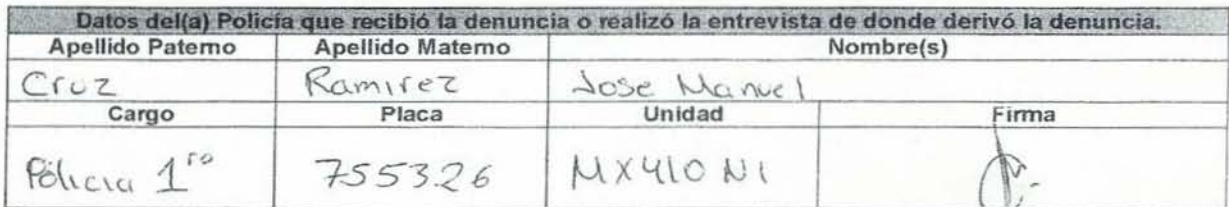 Datos del(a) Policía que recibió la denuncia o realizó la entrevista de donde derivó la denuncia.
Apellido Paterno Apellido Materno Nombre(s)
Cruz Ramirez Jose Manuel
Cargo Placa Unidad Firma
Policia 1ro 755326 MX410 N1